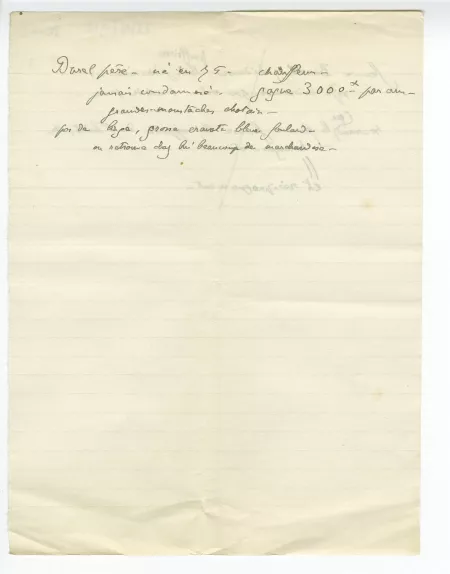 Durel père - né en 75 - chauffeur -
jamais condamné - gagne 3000 - par an -
grandes moustaches chatain -
pas de bague, grosse cravate bleue foulard -
on retrouva chez lui beaucoup de marchandise -